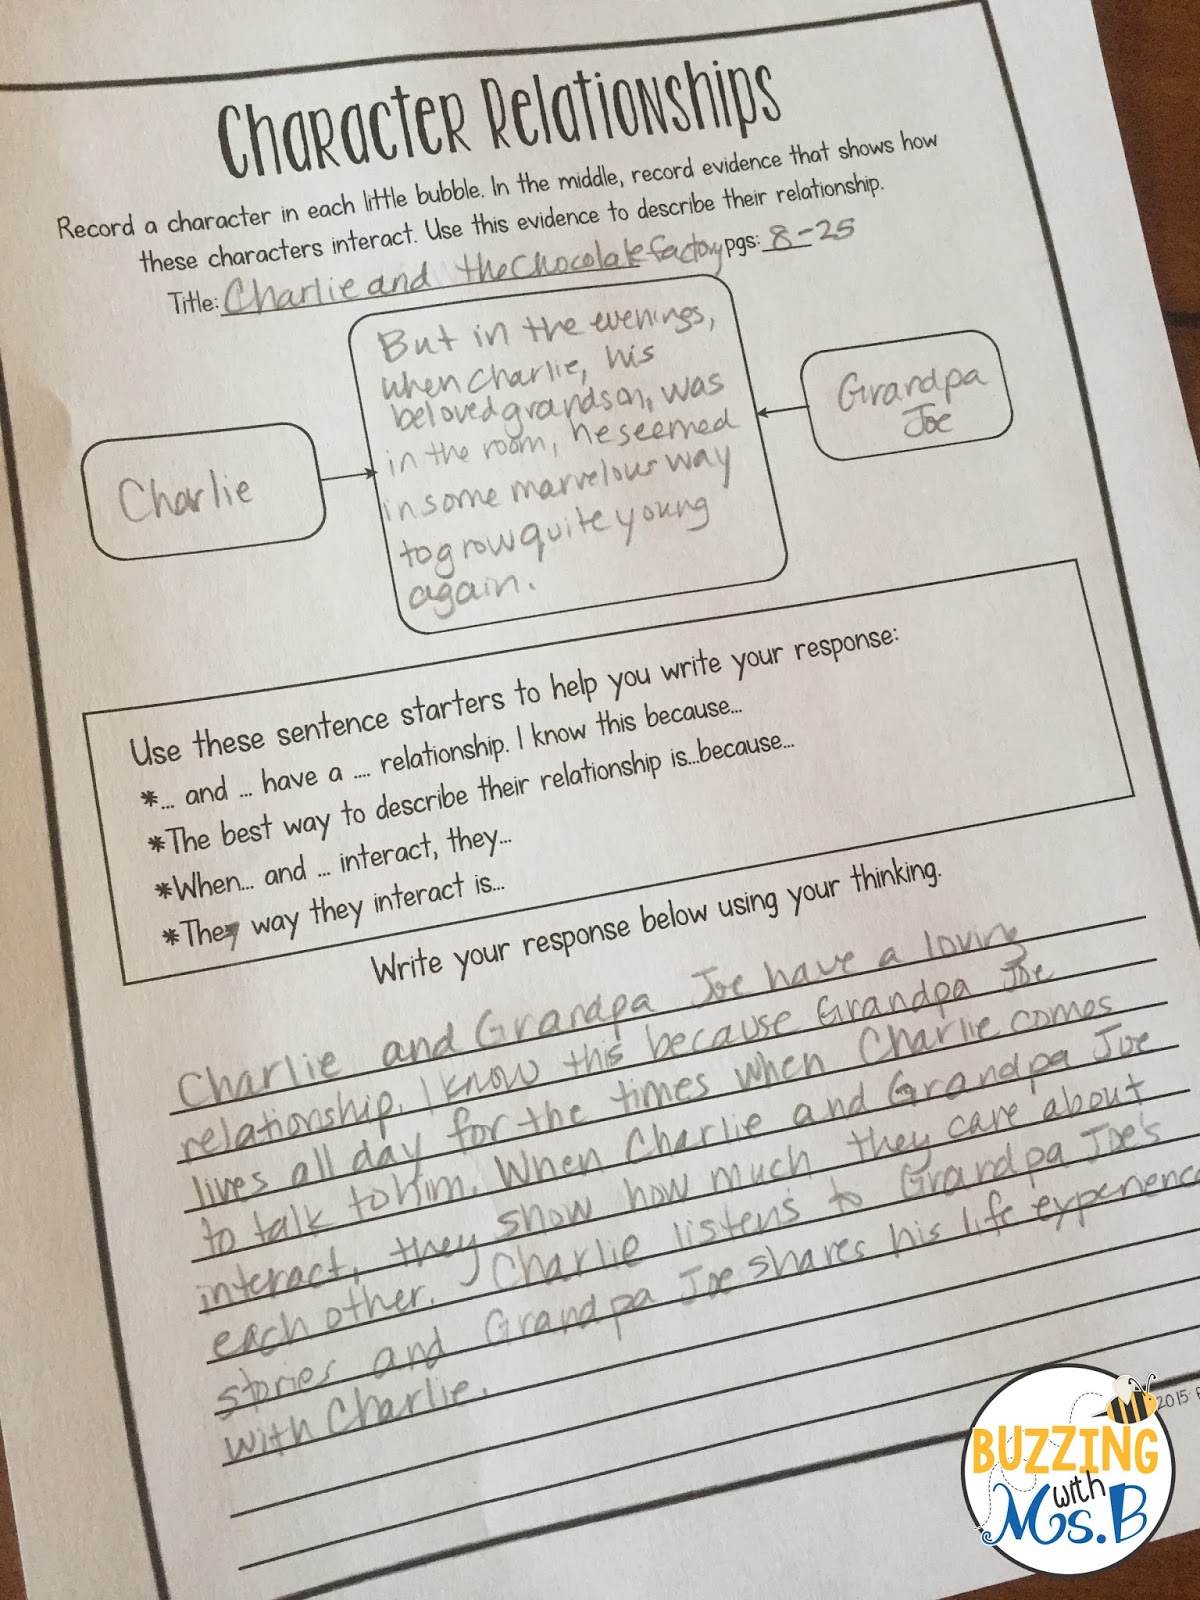 Character Relationships
Record a character in each little bubble. In the middle, record evidence that shows how
these characters interact. Use this evidence to describe their relationship.
Title: Charlie and the Chocolate factory pgs: 8-25
But in the evenings,
when Charlie, his
beloved grandson, was
in the room, he seemed
in some marvelous way
to grow quite young
again.
Charlie
Grandpa
Joe
Use these sentence starters to help you write your response:
*... and ... have a .... relationship. I know this because...
*The best way to describe their relationship is...because...
*When... and ... interact, they...
*They way they interact is...
Write your response below using your thinking.
Charlie and Grandpa Joe have a loving
relationship. I know this because Grandpa Joe
lives all day for the times when Charlie comes
to talk to him. When Charlie and Grandpa Joe
interact, they show how much they care about
each other. Charlie listens to Grandpa Joe's
stories and Grandpa Joe shares his life experience
with Charlie.
2015
BUZZING
with
Ms.B